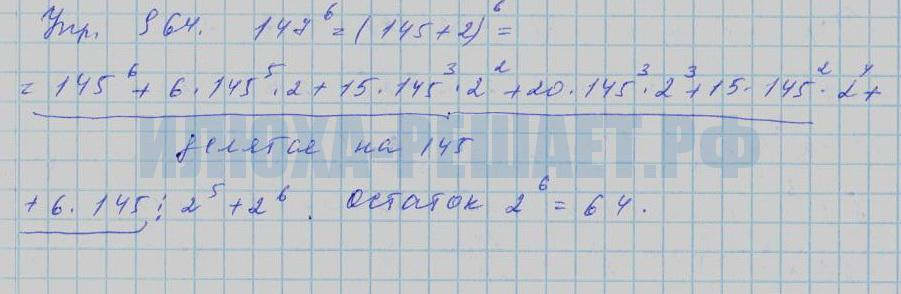 Упр. 964. 147⁶ = (145+2)⁶ =
= 145⁶ + 6·145⁵·2 + 15·145³·2² + 20·145³·2³ + 15·145²·2⁴ +
делятся на 145
+ 6·145 · 2⁵ + 2⁶. остаток 2⁶ = 64.
ИЛЮХА-РЕШАЕТ.РФ